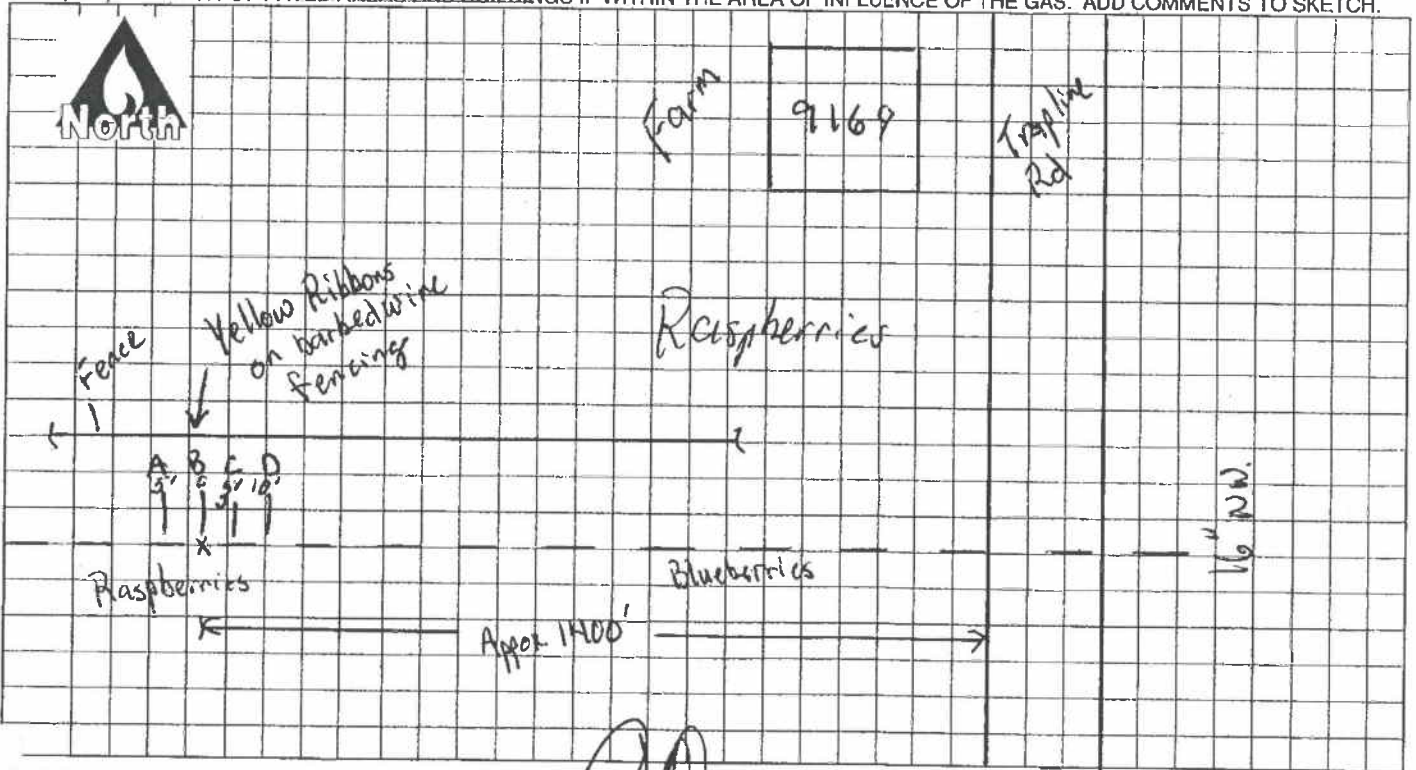 INGS IF WITHIN THE AREA OF INFLUENCE OF THE GAS. ADD COMMENTS TO SKETCH.
North
Farm
9169
Trapline
Rd
Yellow Ribbons
on barbedwire
fencing
Fence
Raspberries
A B C D
5' 5' 10'
X
16" NW.
Raspberries
Blueberries
Appox 1400'